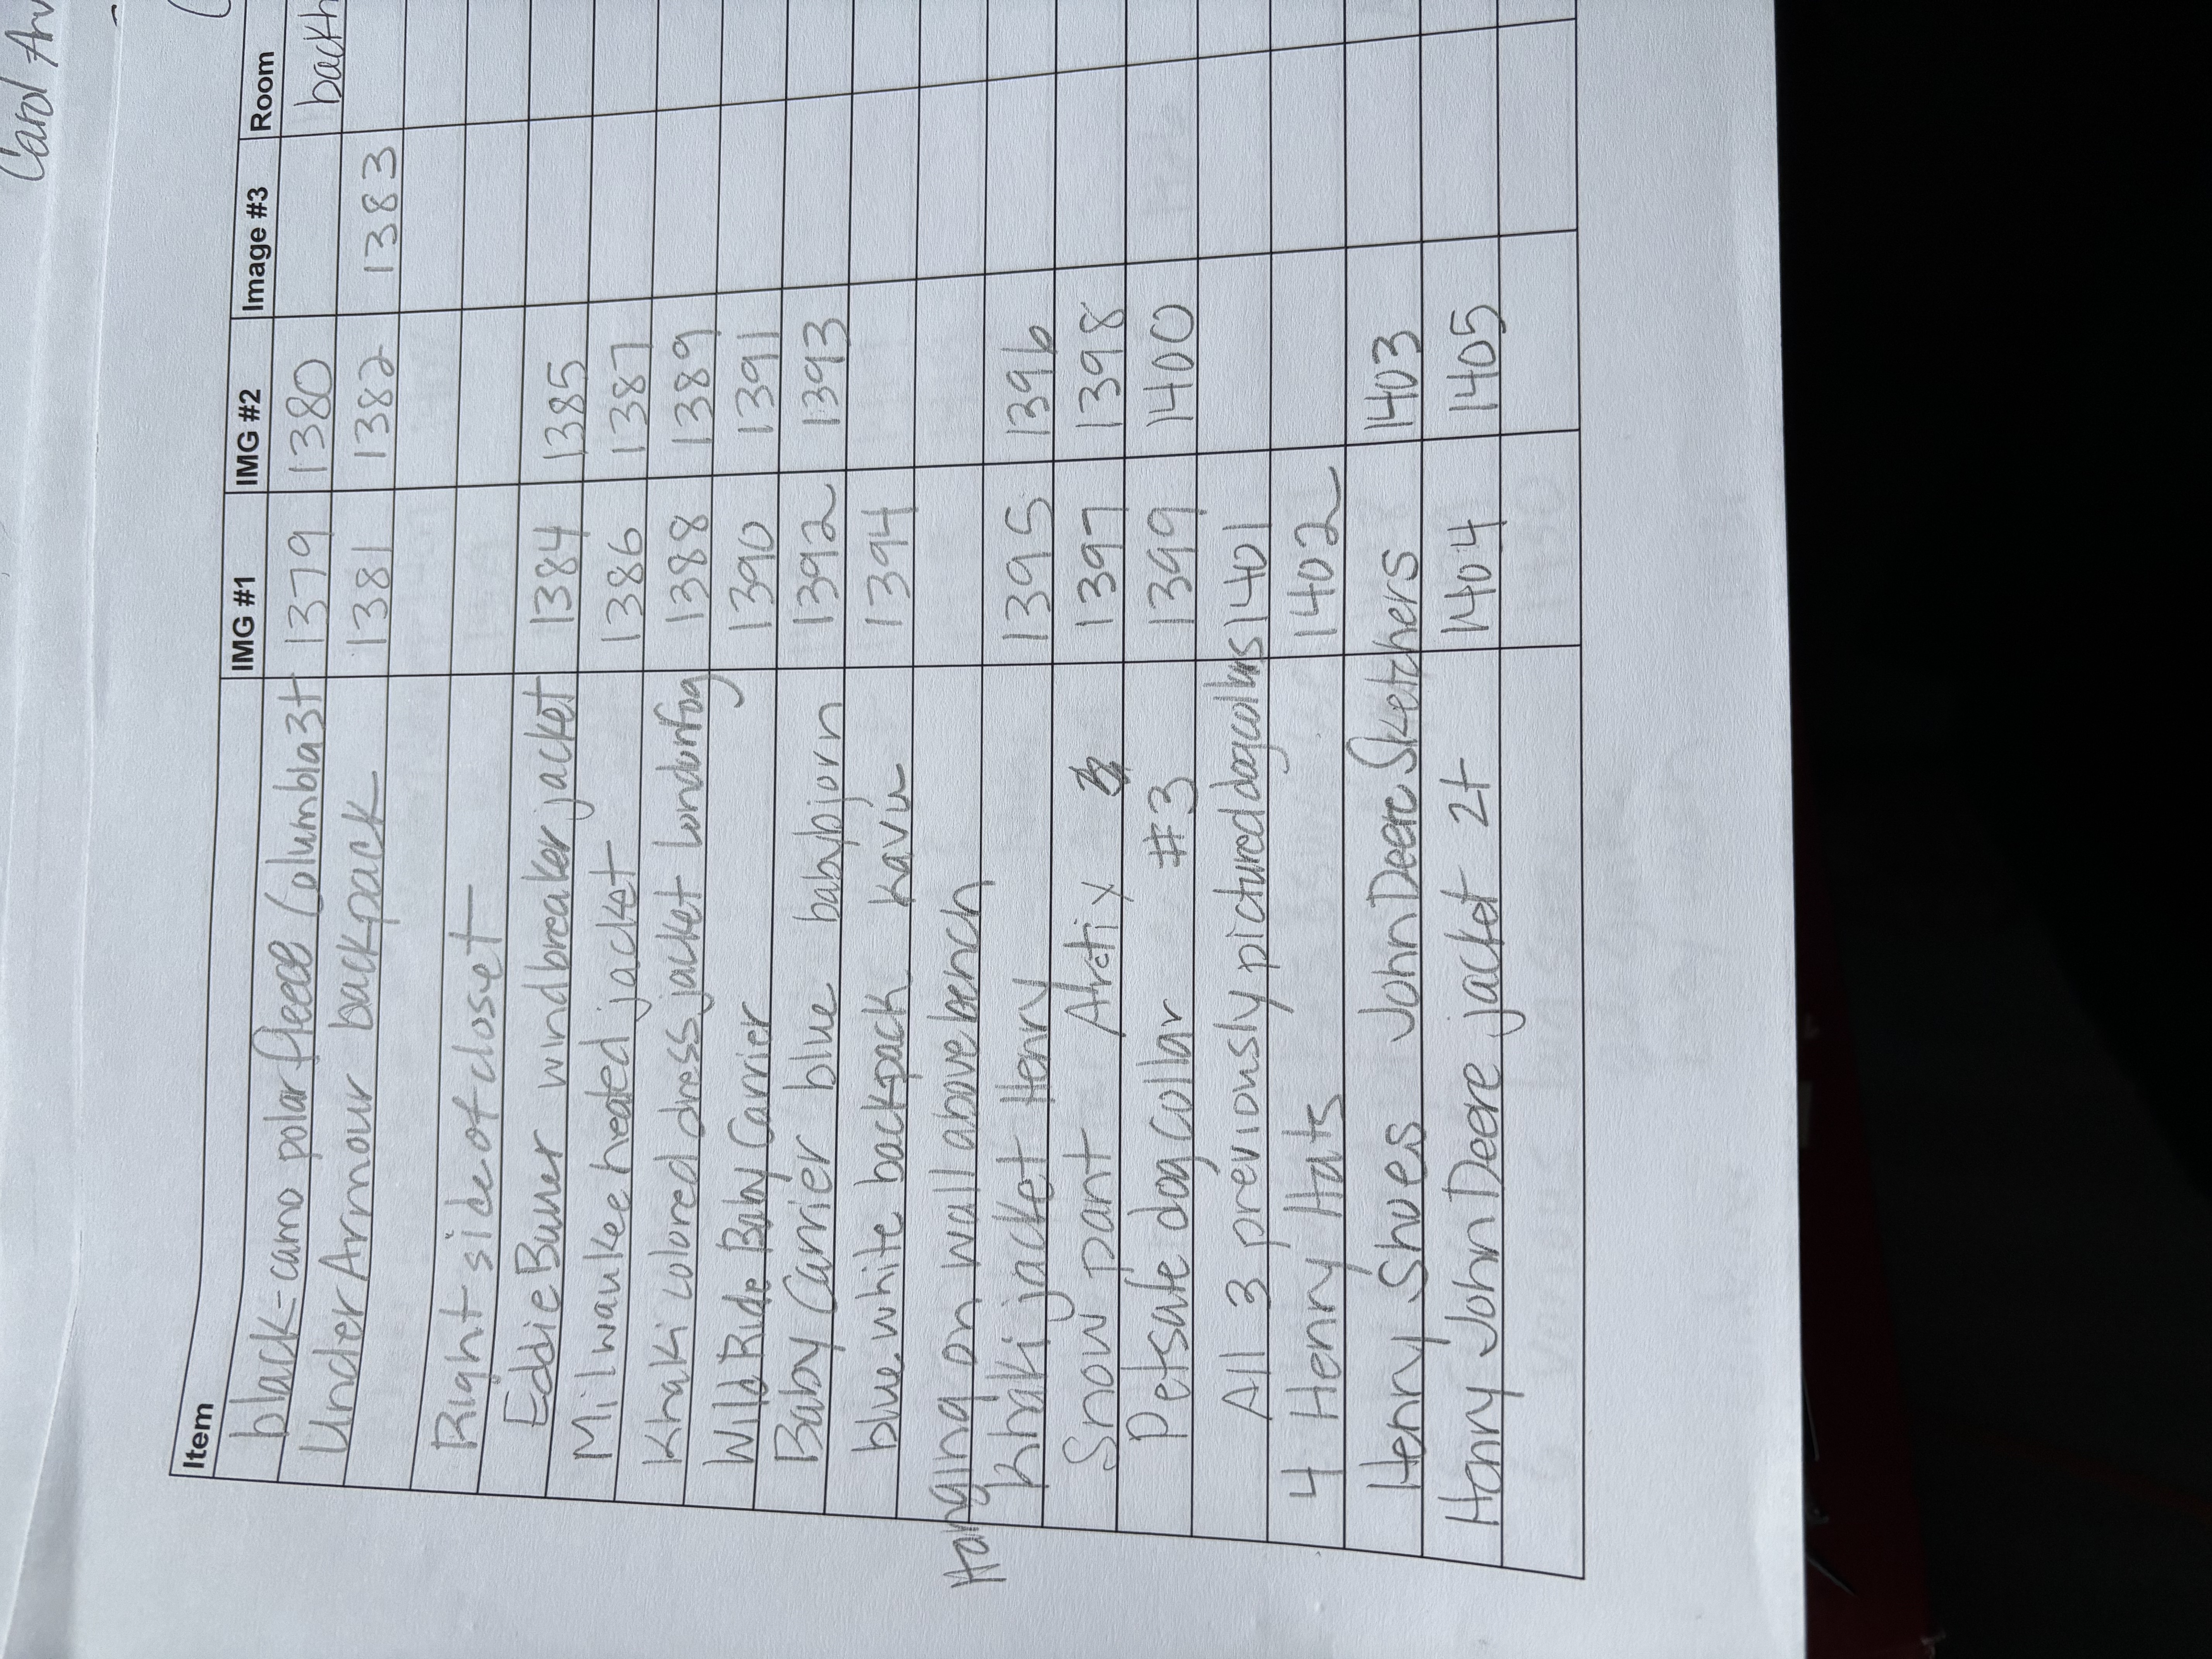 Carol
Item IMG #1 IMG #2 Image #3 Room
black-camo polar fleece Columbia 3t 1379 1380 back
Under Armour backpack 1381 1382 1383
Right side of closet
Eddie Buner windbreaker jacket 1384 1385
Milwaukee heated jacket 1386 1387
Khaki colored dress jacket London fog 1388 1389
Wild Ride Baby Carrier 1390 1391
Baby Carrier blue babybjorn 1392 1393
blue white backpack Kavu 1394
Hanging on wall above bench
Khaki jacket Henry 1395 1396
Snow pant Arctix 1397 1398
Petsafe dog collar #3 1399 1400
All 3 previously pictured dog collars 1401
4 Henry Hats 1402
Henry Shoes John Deere Sketchers 1403
Henry John Deere jacket 2t 1404 1405